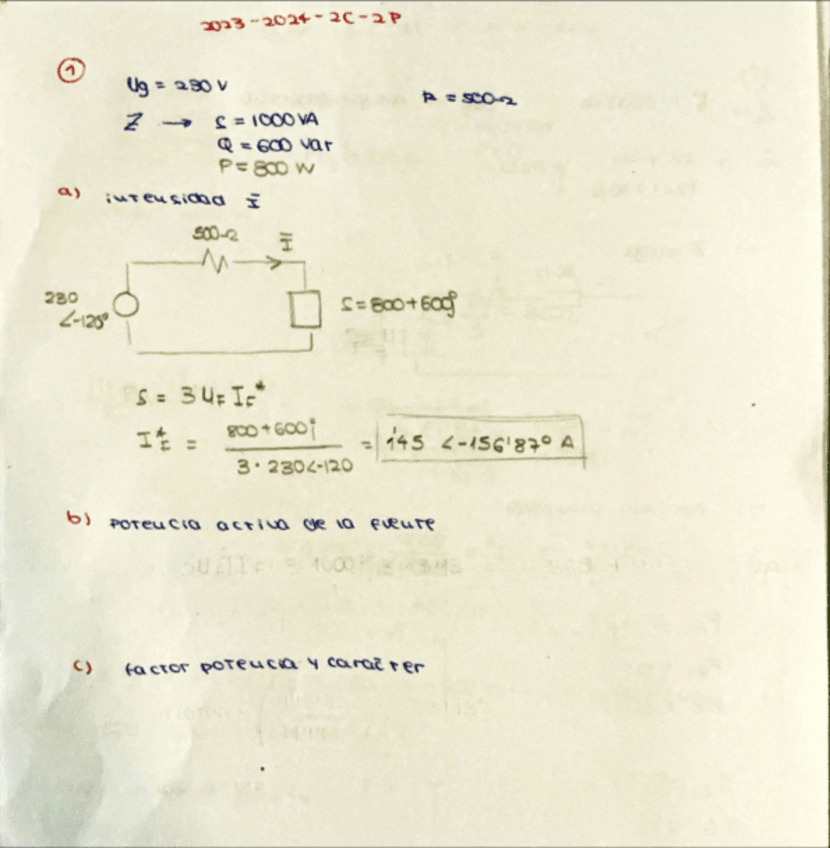 2023-2024-2C-2P
1
Ug = 230 V
R = 500Ω
Z → S = 1000 VA
Q = 600 Var
P = 800 W
a) intensidad Ī
500Ω Ī
230
∠-120°
S = 800+600j
S = 3 UF IF*
IF* = 800+600j / 3·230∠-120 = 1'45 ∠-156'87° A
b) potencia activa de la fuente
c) factor potencia y carácter